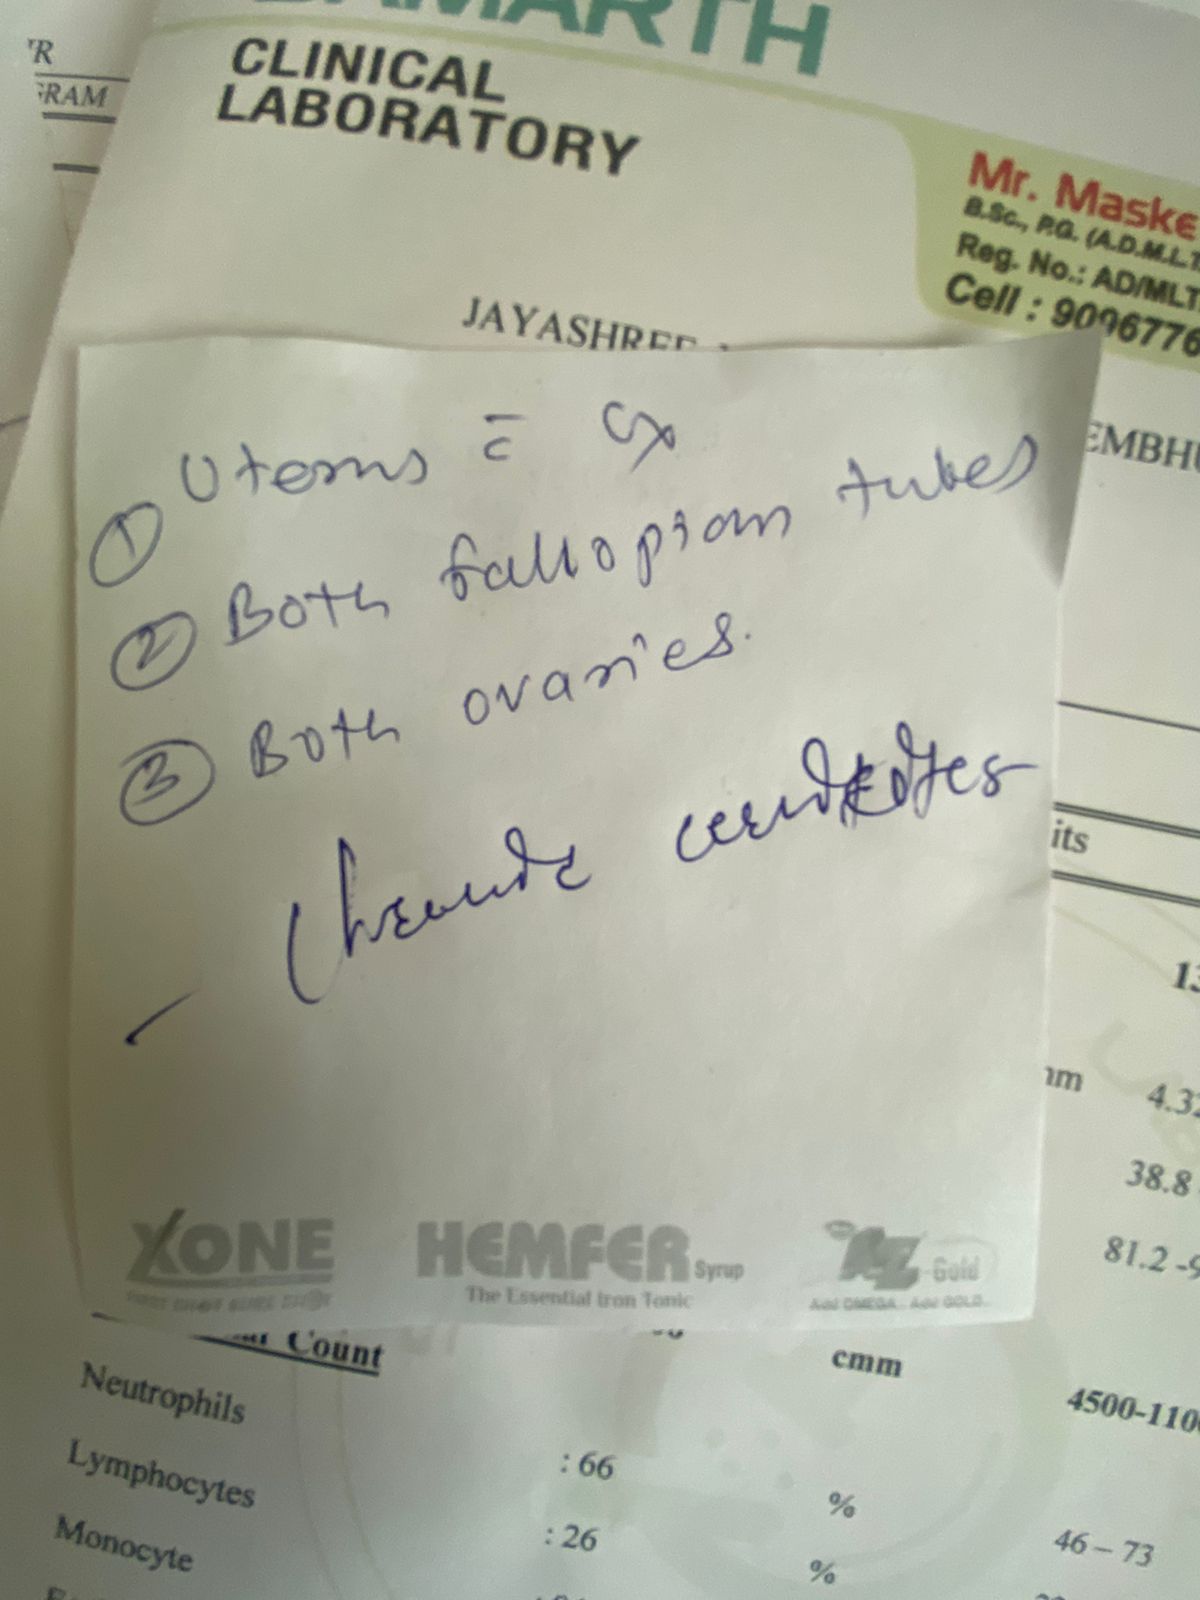 'R
GRAM
SAMARTH
CLINICAL
LABORATORY
Mr. Maske
B.Sc., P.G. (A.D.M.L.T
Reg. No.: AD/MLT
Cell : 9096776
JAYASHREE
EMBHU
① Uterus c̄ Cx
② Both fallopian tubes
③ Both ovaries.
Chronic
its
13
nm
4.32
38.8
81.2 -9
XONE
HEMFER Syrup
The Essential Iron Tonic
AZ Gold
Add OMEGA . Add GOLD.
Count
cmm
4500-1100
Neutrophils : 66 % 46 – 73
Lymphocytes : 26 %
Monocyte